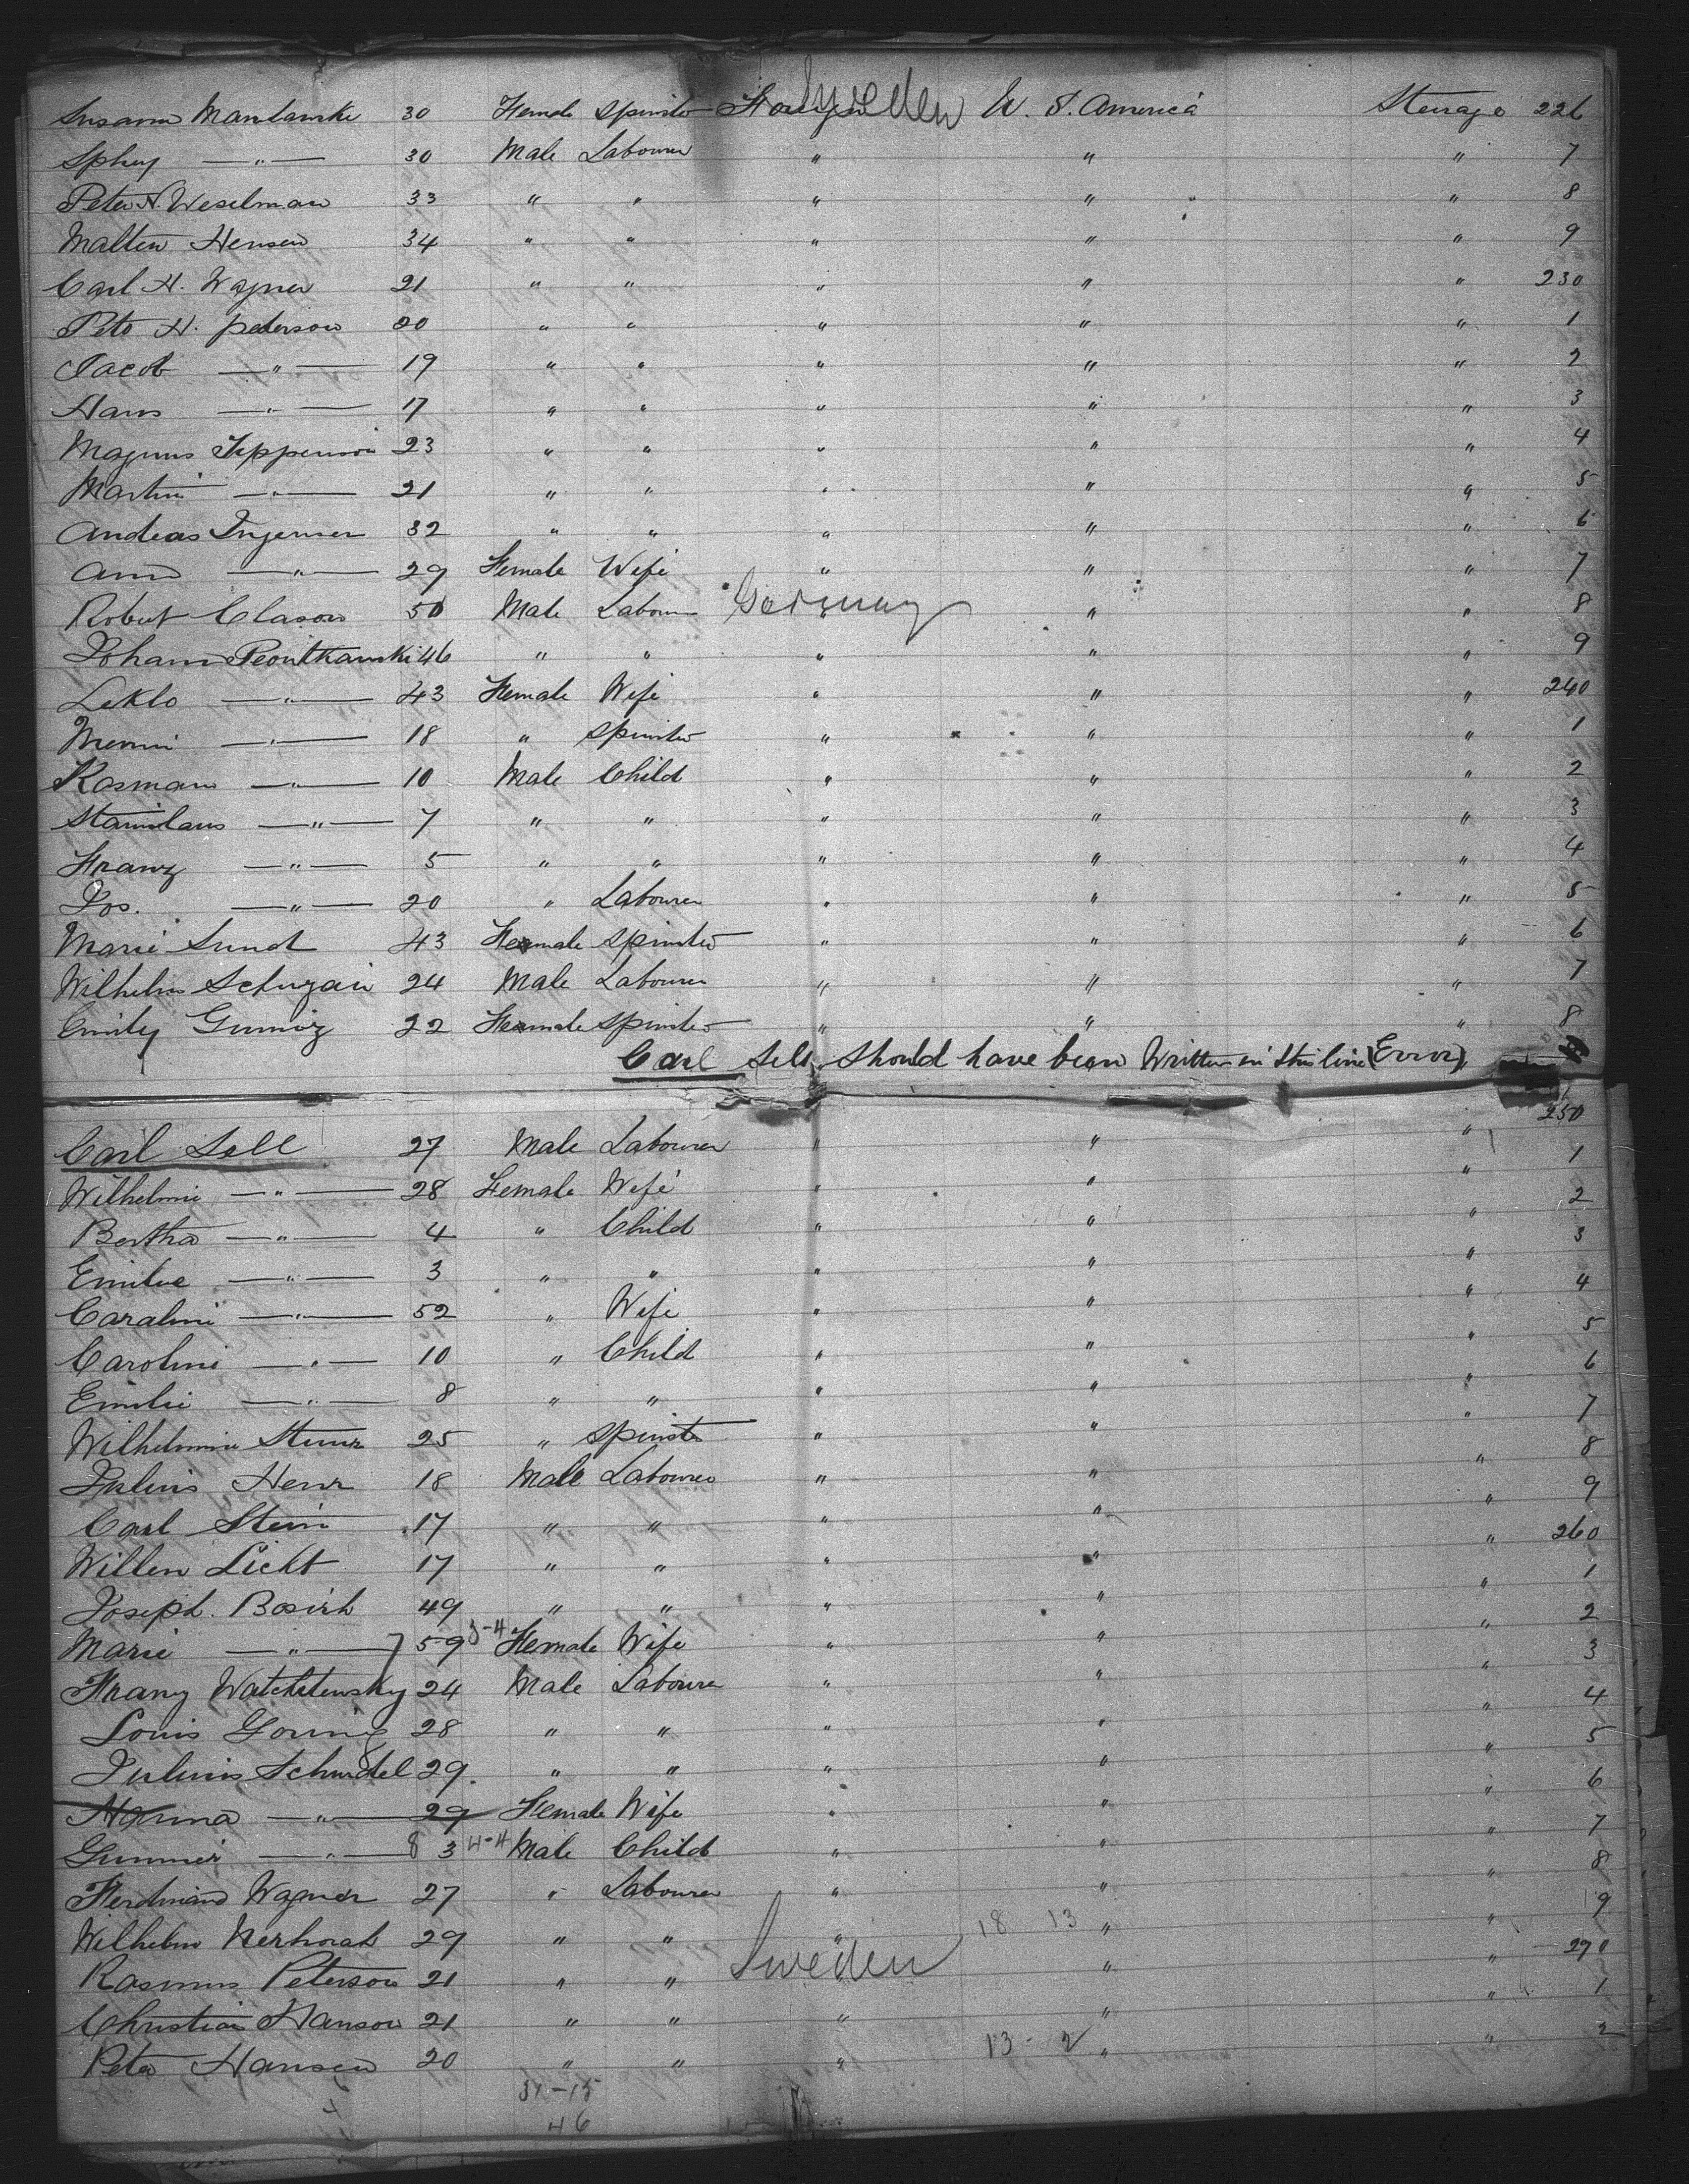 Susanna Mantanske 30 Female Spinster Foreign Sweden U. S. America Steerage 226
Sphey —"— 30 Male Labourer " " " 7
Peter N. Weselman 33 " " " " " 8
Malten Hensen 34 " " " " " 9
Carl H. Wagner 21 " " " " " 230
Peto H. pederson 20 " " " " " 1
Jacob —"— 19 " " " " " 2
Hans —"— 17 " " " " " 3
Magnus Jeppenson 23 " " " " " 4
Martin —"— 21 " " " " " 5
Andeas Ingerner 32 " " " " " 6
Ann —"— 29 Female Wife " " " 7
Robert Clason 50 Male Labourer Germany " " " 8
Johann Peontkanski 46 " " " " " 9
Leklo —"— 43 Female Wife " " " 240
Menni —"— 18 " Spinster " " " 1
Rosman —"— 10 Male Child " " " 2
Stanislaus —"— 7 " " " " " 3
Franz —"— 5 " " " " " 4
Jos. —"— 20 " Labourer " " " 5
Marie Lundt 43 Female Spinster " " " 6
Wilhelm Schugan 24 Male Labourer " " " 7
Emily Gumoz 22 Female Spinster " " " 8
Carl Sell should have been Written in this line (Error)
Carl Sell 27 Male Labourer " " " 250
Wilhelmi —"— 28 Female Wife " " " 1
Bertha —"— 4 " Child " " " 2
Emilue —"— 3 " " " " " 3
Caralini —"— 52 " Wife " " " 4
Carolini —"— 10 " Child " " " 5
Emilie —"— 8 " " " " " 6
Wilhelmine Stunr 25 " Spinster " " " 7
Julius Henr 18 Male Labourer " " " 8
Carl Stein 17 " " " " " 9
Willem Licht 17 " " " " " 260
Joseph Bosirk 49 " " " " " 1
Marie —"— 59 3-4 Female Wife " " " 2
Franz Watchtewsky 24 Male Labourer " " " 3
Louis Goring 28 " " " " " 4
Julius Schudel 29 " " " " " 5
Hanna —"— 29 Female Wife " " " 6
Gunner —"— 8 3 4-4 Male Child " " " 7
Ferdinand Wagner 27 " Labourer " " " 8
Wilhelm Nerhorat 29 " " " 18 13 " " 9
Rasmus Peterson 21 " " Sweden " " 270
Christian Hanson 21 " " " " " 1
Peter Hansen 20 " " " 13-2 " " 2
31-15
46